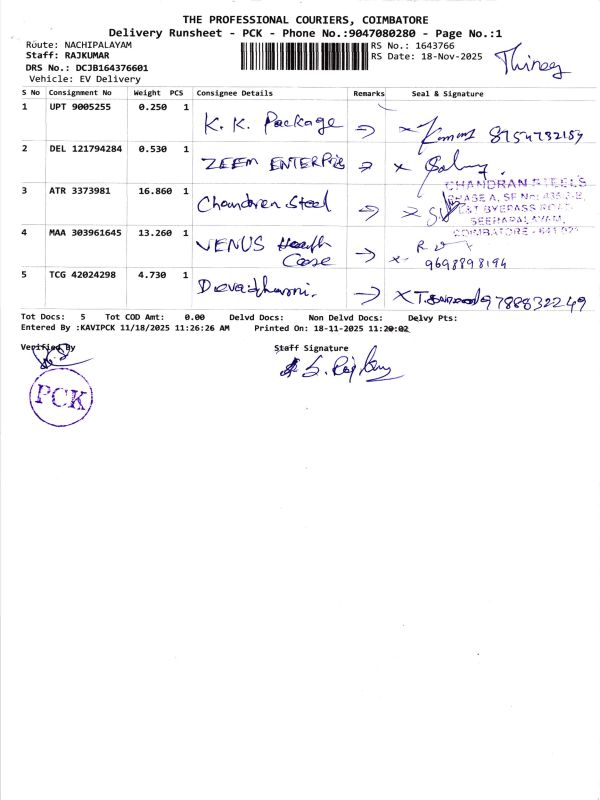 THE PROFESSIONAL COURIERS, COIMBATORE
Delivery Runsheet - PCK - Phone No.:9047080280 - Page No.:1
Route: NACHIPALAYAM
Staff: RAJKUMAR
DRS No.: DCJB164376601
Vehicle: EV Delivery
RS No.: 1643766
RS Date: 18-Nov-2025
S No Consignment No Weight PCS Consignee Details Remarks Seal & Signature
1 UPT 9005255 0.250 1 K.K. Package
2 DEL 121794284 0.530 1 ZEEM ENTERPRIS
3 ATR 3373981 16.860 1 Chandren Steel
CHANDRAN STEELS
BYEPASS ROAD
SEERAPALAYAM,
COIMBATORE - 641 021
4 MAA 303961645 13.260 1 VENUS Health
Case
9698898194
5 TCG 42024298 4.730 1 Devadharni. 9788832249
Tot Docs: 5 Tot COD Amt: 0.00 Delvd Docs: Non Delvd Docs: Delvy Pts:
Entered By :KAVIPCK 11/18/2025 11:26:26 AM Printed On: 18-11-2025 11:20:02
Verified By Staff Signature
PCK